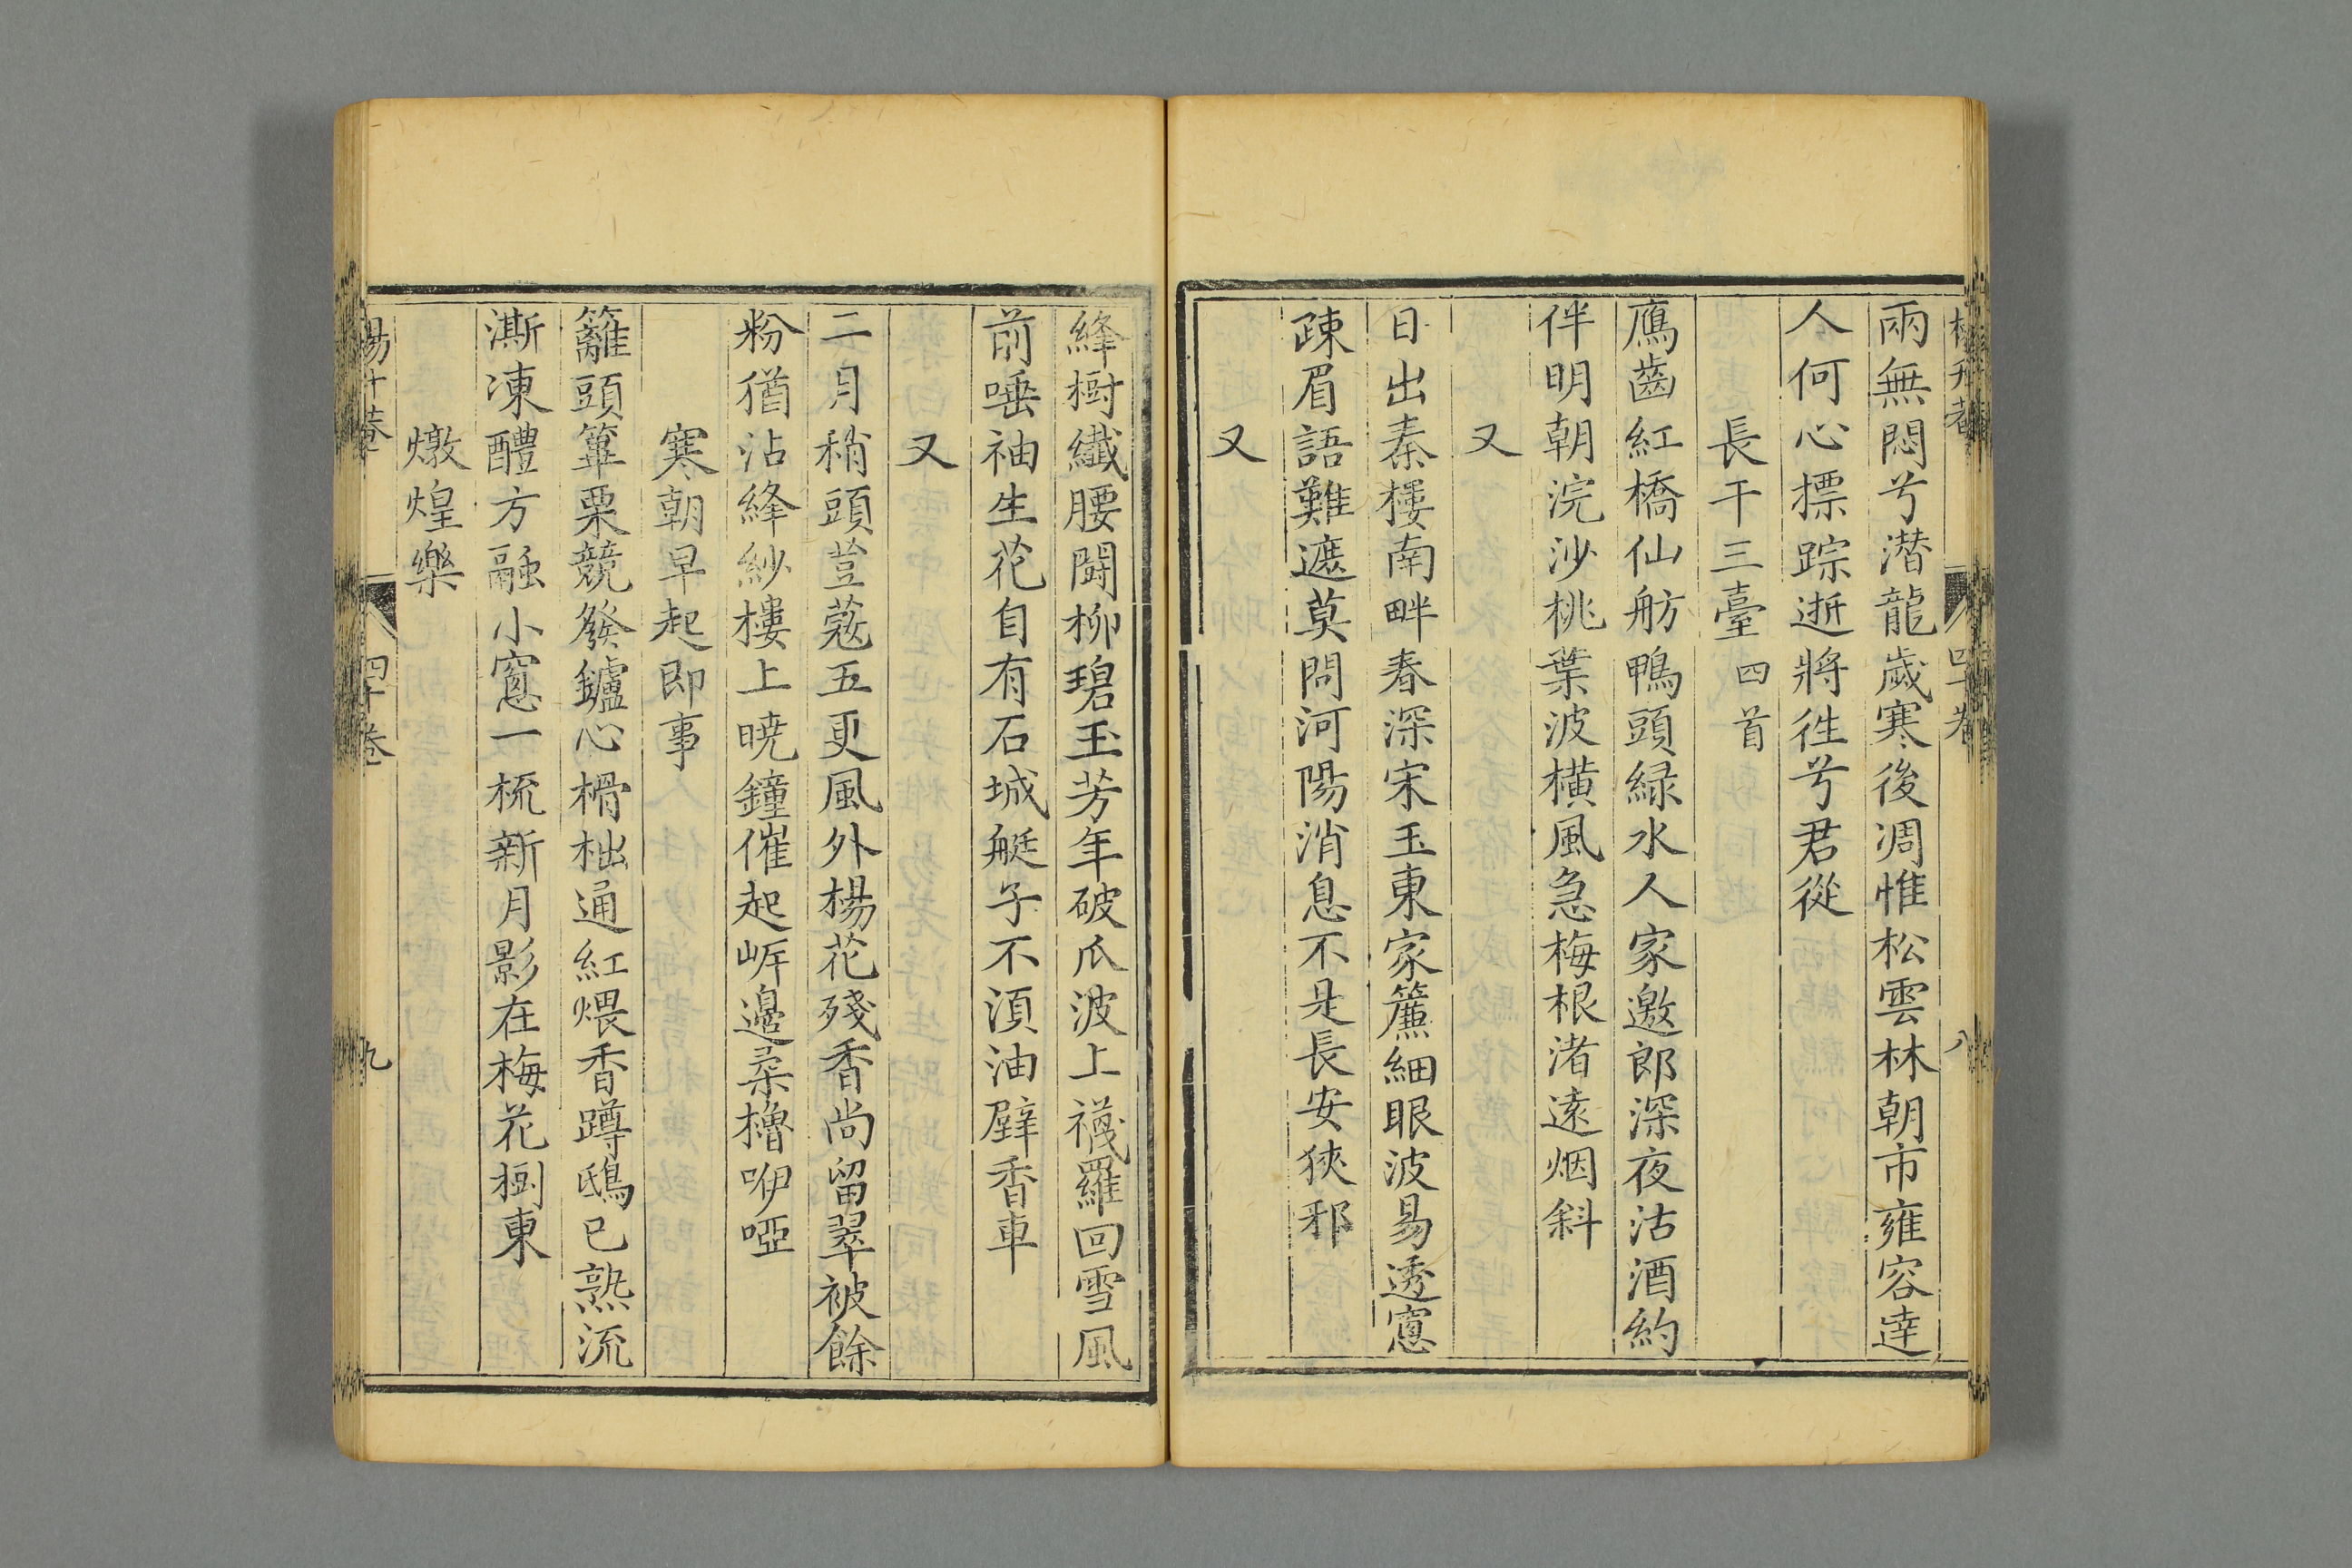 兩無悶兮潛龍歲寒後凋惟松雲林朝市雍容達
人何心摽踪逝將徃兮君從
長干三臺四首
鴈齒紅橋仙舫鴨頭緑水人家邀郎深夜沽酒約
伴明朝浣沙桃葉波橫風急梅根渚遠烟斜
又
日出秦樓南畔春深宋玉東家簾細眼波易透窻
疎眉語難遮莫問河陽消息不是長安狹邪
又
絳樹纖腰鬪柳碧玉芳年破瓜波上襪羅回雪風
前唾袖生花自有石城艇子不湏油壁香車
又
二月稍頭荳蔻五更風外楊花殘香尚留翠被餘
粉猶沾絳紗樓上曉鐘催起岍邉柔櫓咿啞
寒朝早起即事
籬頭篳栗競發鑪心榾柮通紅煨香蹲鴟已熟流
澌凍醴方融小窻一梳新月影在梅花樹東
燉煌樂
四十卷
九
四十卷
八